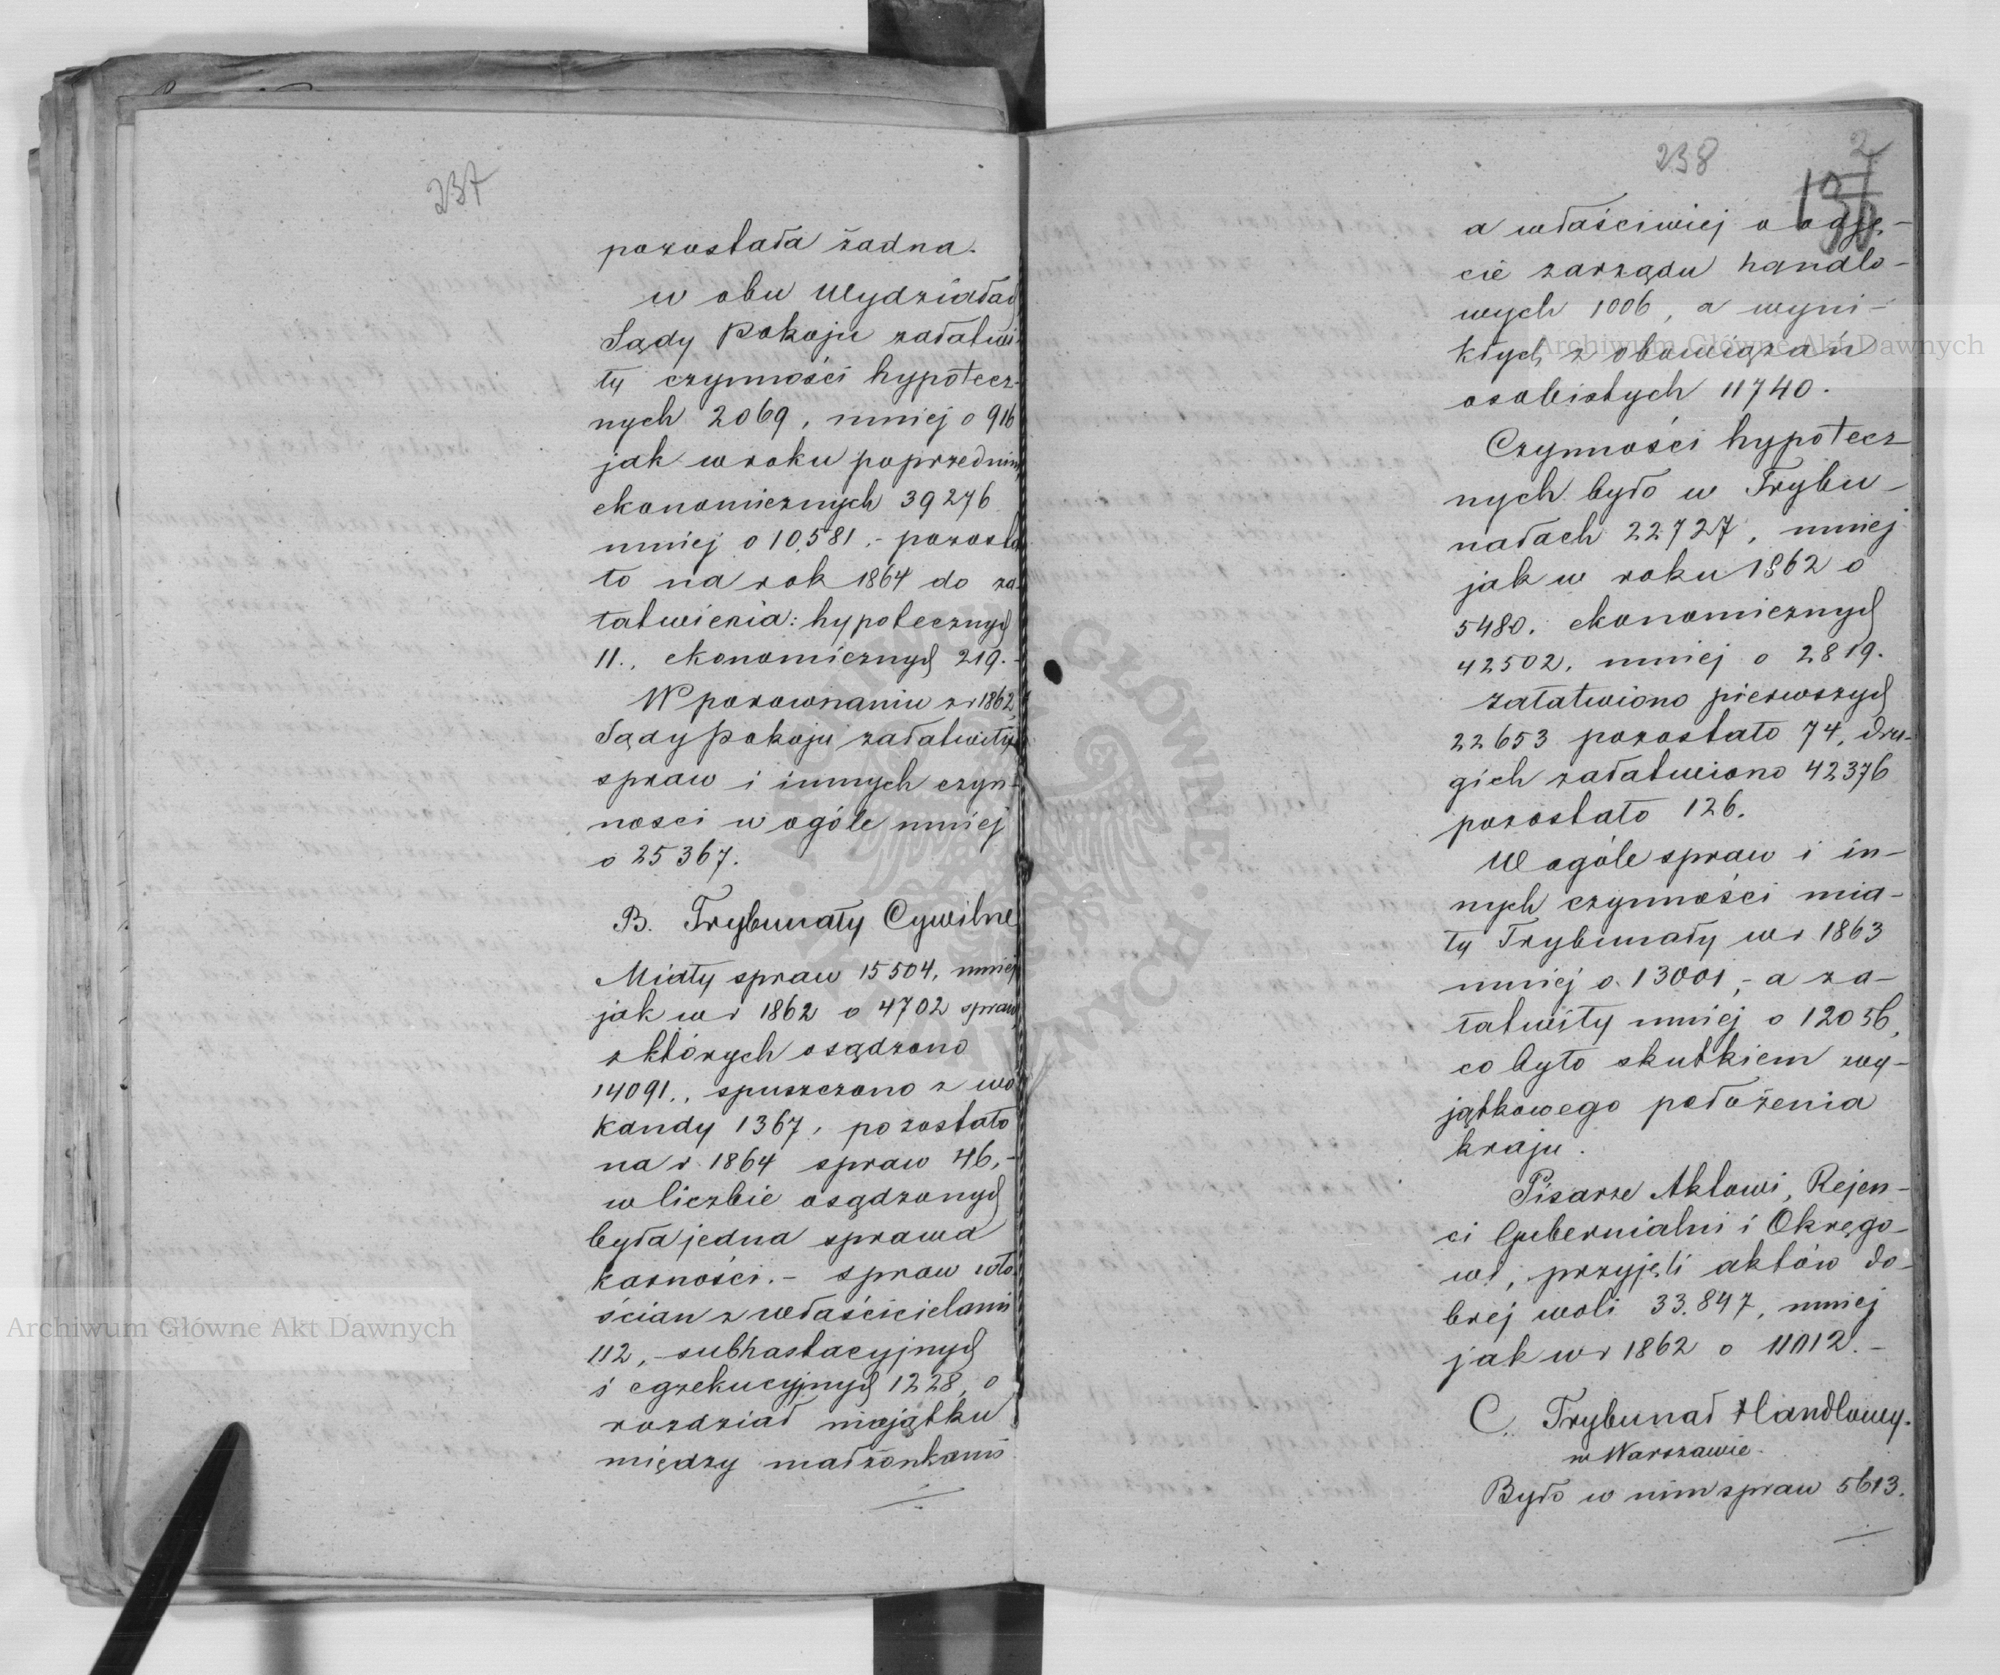 237
pozostała żadna.
w obu Wydziałach
Sądy Pokoju załatwi-
ły czynności hypotecz-
nych 2069, mniej o 916
jak w roku poprzednim
ekonomicznych 39276
mniej o 10,581.- pozosta
ło na rok 1864 do za-
łatwienia: hypotecznych
11., ekonomicznych 219.-
W porownaniu z r 1862
Sądy Pokoju załatwiły
spraw i innych czyn-
nosci w ogóle mniej
o 25367.
B. Trybunały Cywilne
Miały spraw 15504, mniej
jak w r 1862 o 4702 spraw
z których osądzono
14091., spuszczono z wo
kandy 1367, pozostało
na r. 1864 spraw 46,-
w liczbie osądzonych
była jedna sprawa
karności.- spraw wło
ścian z właścicielami
112, subhastacyjnych
i egzekucyjnych 1228, o
rozdział majątku
między małżonkami
238
2
a właściwiej o odję-
cie zarządu handlo-
wych 1006, a wyni-
kłych z obowiązań
osobistych 11740.
Czynności hypotecz
nych było w Trybu-
nałach 22727, mniej
jak w roku 1862 o
5480. ekonomicznych
42502, mniej o 2819.
załatwiono pierwszych
22653 pozostało 74, dru-
gich załatwiono 42376
pozostało 126.
W ogóle spraw i in-
nych czynności mia-
ły Trybunały w r 1863
mniej o 13001,- a za-
łatwiły mniej o 12056,
co było skutkiem wy-
jątkowego położenia
kraju.
Pisarze Aktowi, Rejen-
ci Gubernialni i Okręgo-
wi, przyjęli aktów do-
brej woli 33.847, mniej
jak w r 1862 o 11012.-
C. Trybunał Handlowy.
w Warszawie.
Było w nim spraw 5613.
Archiwum Główne Akt Dawnych
Archiwum Główne Akt Dawnych